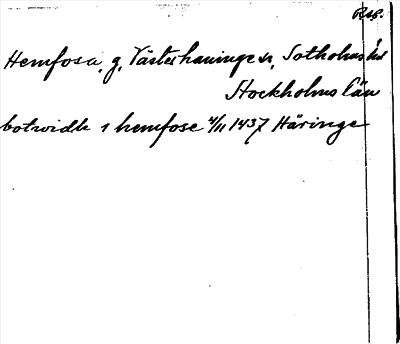 Hemfosa, g. Västerhaninge sn, Sotholms hd
Stockholms län
botwidh i hemfose 4/11 1437 Häringe